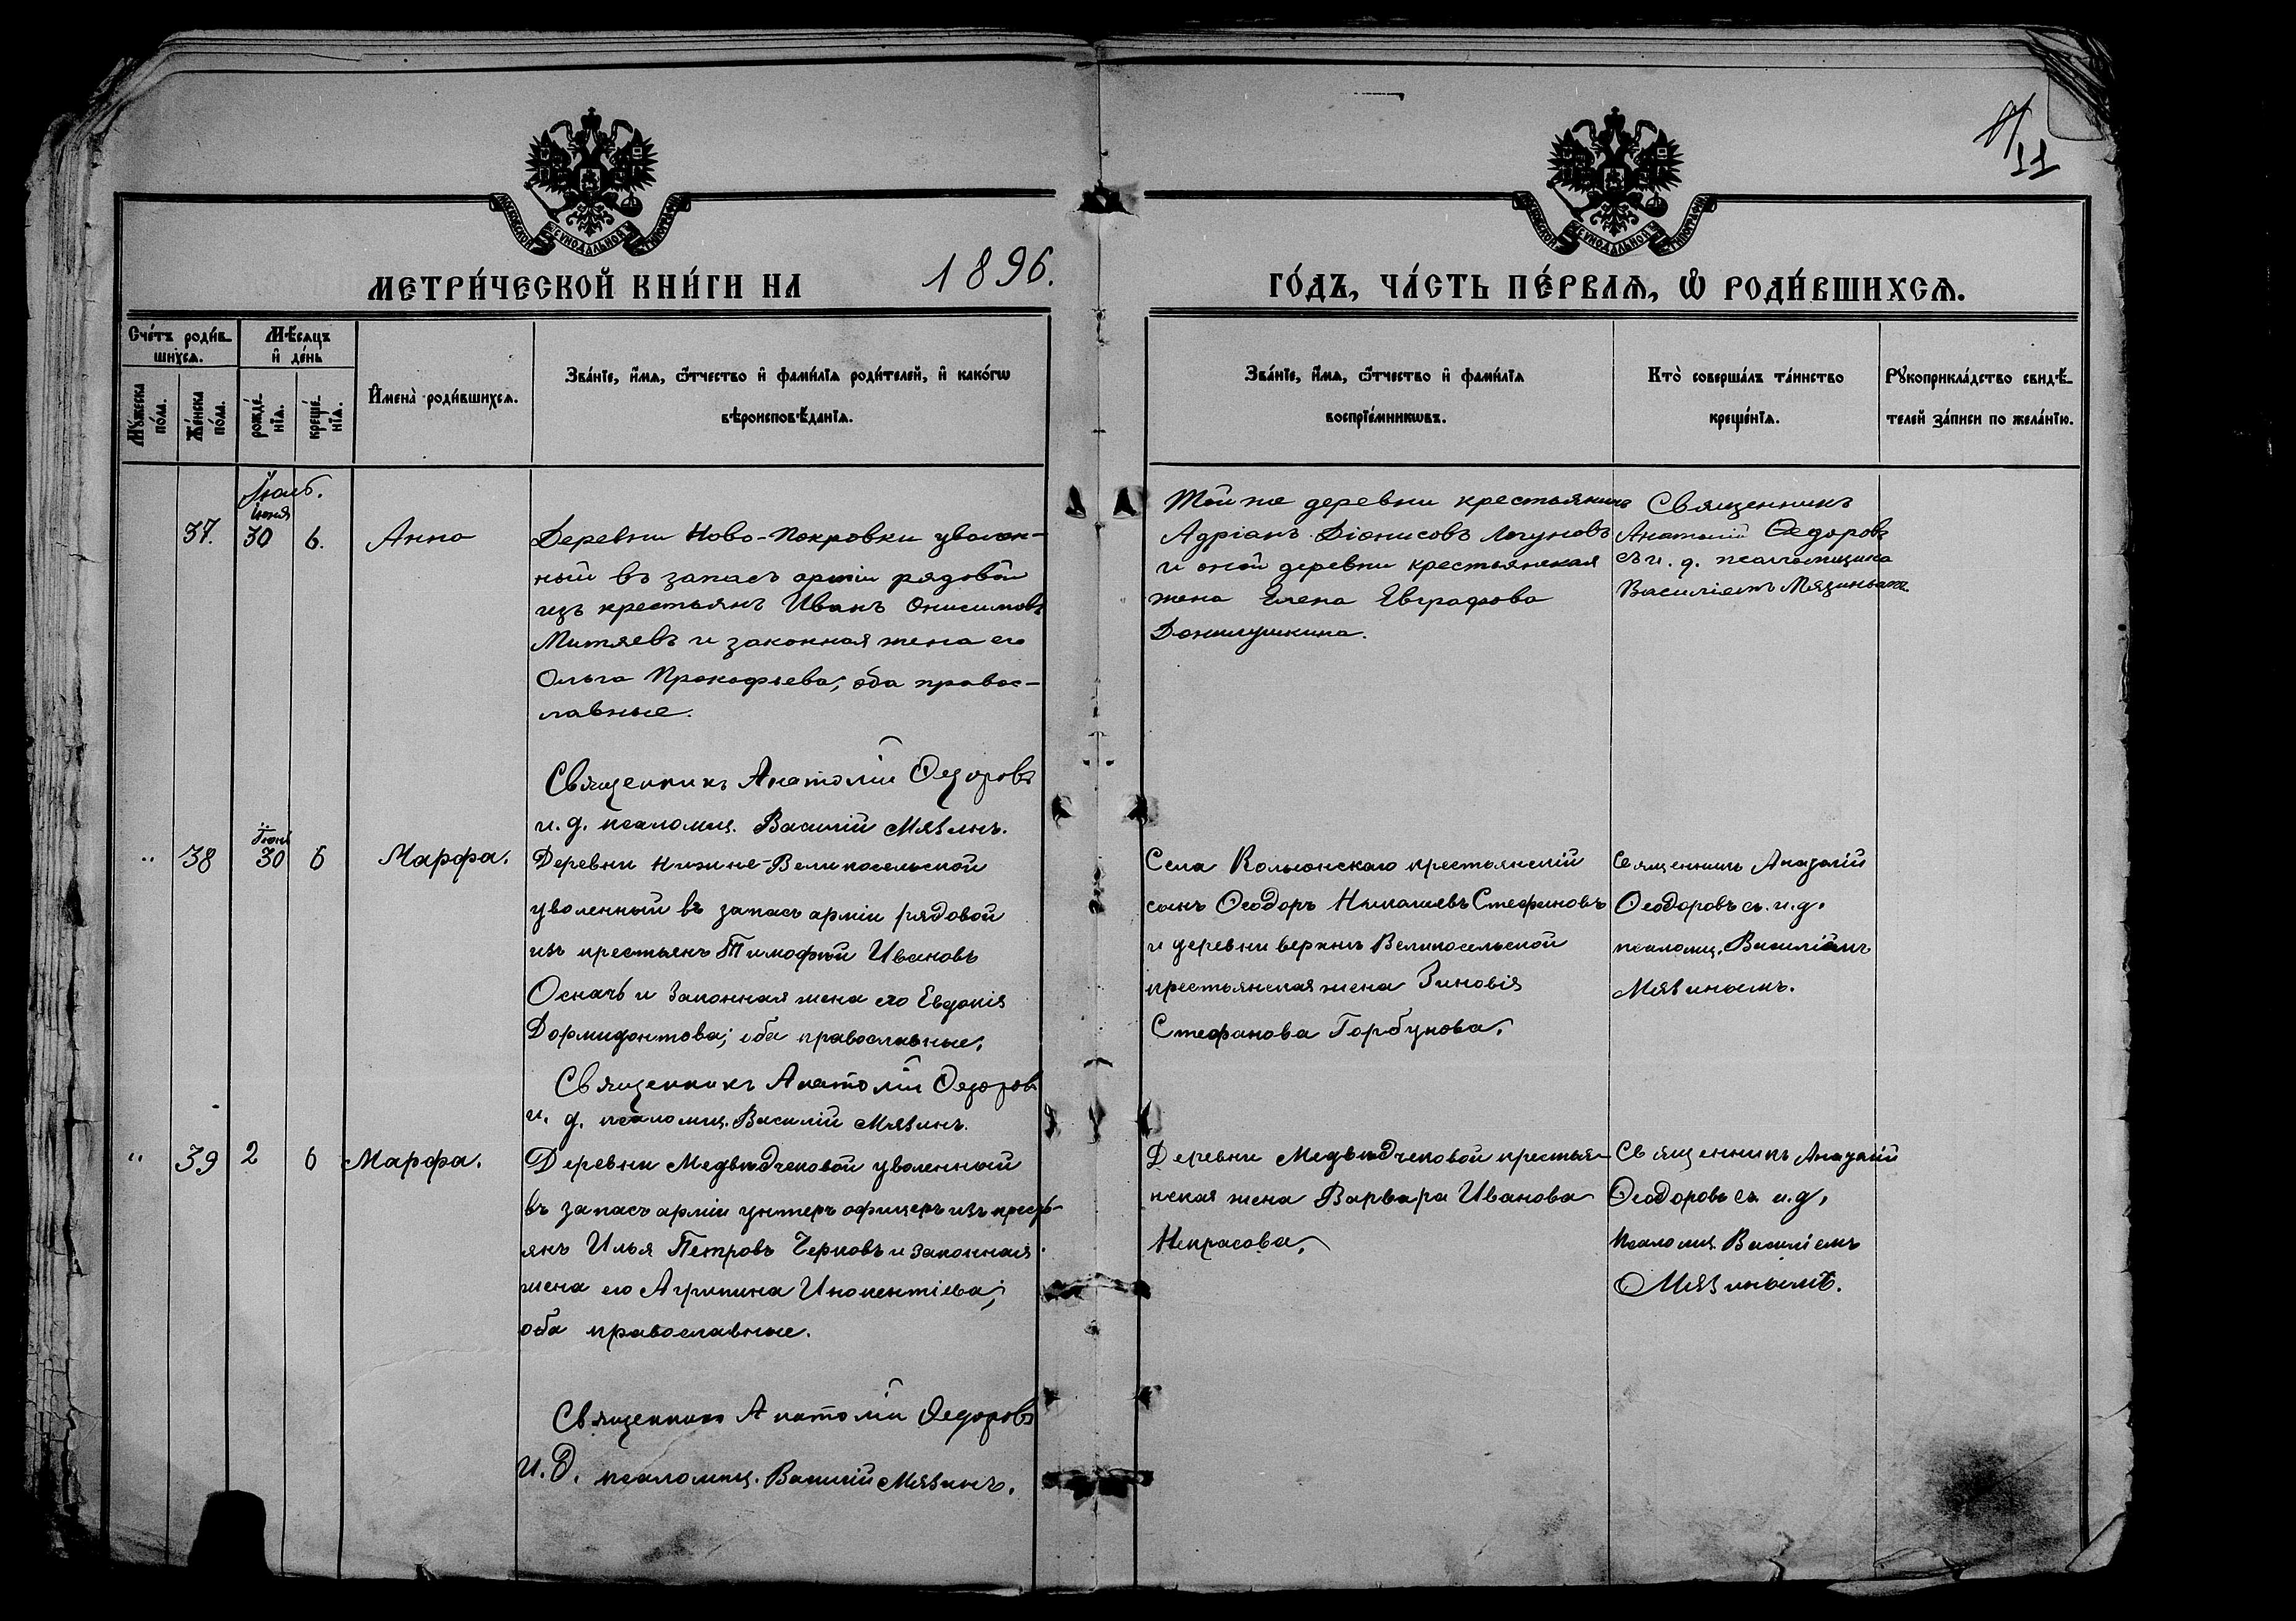 11
МЕТРИ́ЧЕСКОЙ КНИ́ГИ НА 1896.
ГО́ДЪ, ЧА́СТЬ ПЕ́РВАѦ, Ѡ҆ РОДИ́ВШИХСѦ.
Сче́тъ роди́в-
шихсѧ.
Мѣ́сѧцъ
и҆ де́нь
Мꙋ́жеска
по́ла.
Же́нска
по́ла.
рожде́-
нїѧ.
креще́-
нїѧ.
И҆мена̀ роди́вшихсѧ.
Зва́нїе, и҆́мѧ, ѻ҆́тчество и҆ фами́лїѧ роди́телей, и҆ како́гѡ
вѣроисповѣ́данїѧ.
Зва́нїе, и҆́мѧ, ѻ҆́тчество и҆ фами́лїѧ
воспрїе́мникѡвъ.
Кто̀ соверша́лъ та́инство
креще́нїѧ.
Рꙋкоприкла́дство свидѣ́-
телей за́писи по жела́нїю.
Іюль.
іюня
37. 30 6. Анна
Деревни Ново-Покровки уволен-
ный въ запасъ арміи рядовой
изъ крестьянъ Иванъ Онисимовъ
Митяевъ и законная жена его
Ольга Прокофьева; оба правос-
лавные.
Священникъ Анатолій Ѳедоровъ
и. д. псаломщ. Василій Мязинъ.
Той же деревни крестьянинъ
Адріанъ Діонисовъ Логуновъ
и оной деревни крестьянская
жена Елена Евграфова
Данилушкина.
Священникъ
Анатолій Ѳедоровъ
съ и. д. псаломщика
Василіемъ Мязинымъ
Іюня
" 38 30 6 Марфа.
Деревни Нижне-Великосельской
уволенный въ запасъ арміи рядовой
изъ крестьянъ Тимофѣй Ивановъ
Оскачъ и законная жена его Евдокія
Дормидонтова; оба православные.
Священникъ Анатолій Ѳедоровъ
и. д. псаломщ. Василій Мязинъ.
Села Кольонскаго крестьянскій
сынъ Ѳеодоръ Стефановъ
и деревни верхнь Великосельской
крестьянская жена Зиновія
Стефанова Горбунова.
Священникъ Анатолій
Ѳеодоровъ съ. и. д.
псаломщ. Василіемъ
Мязинымъ.
" 39 2 6 Марфа.
Деревни Медвѣдчековой уволенный
въ запасъ арміи унтеръ офицеръ изъ кресть-
янъ Илья Петровъ Черковъ и законная
жена его Агрипина Инокентіева;
оба православные.
Священникъ Анатолій Ѳедоровъ
И. Д. псаломщ. Василій Мязинъ.
Деревни Медвѣдчековой крестья-
нская жена Варвара Иванова
Некрасова.
Священникъ Анатолій
Ѳеодоровъ съ и. д.
псаломщ. Василіемъ
Мязинымъ.